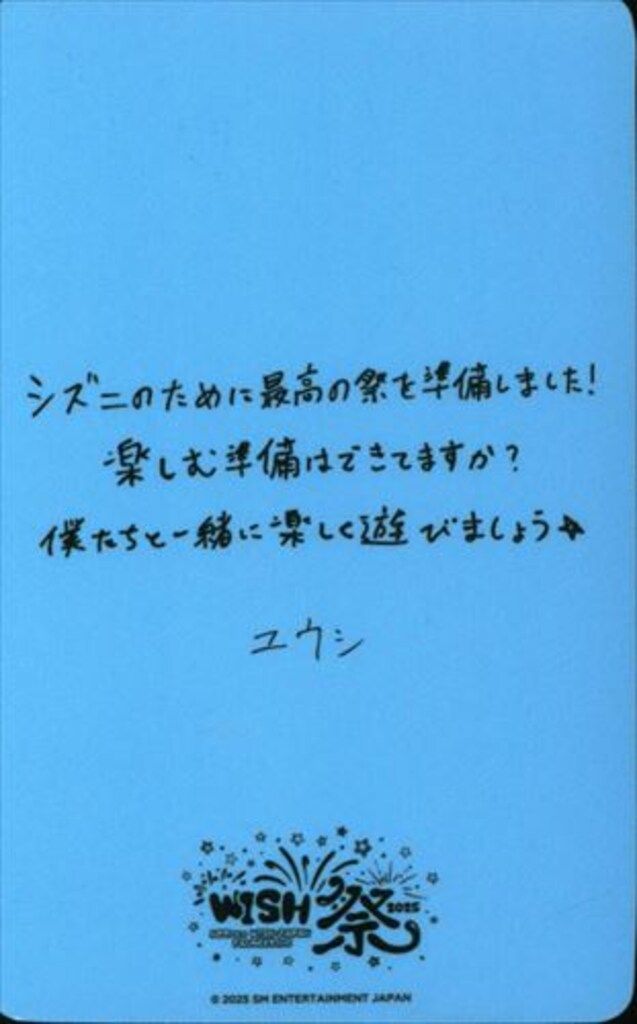 シズニのために最高の祭を準備しました!
楽しむ準備はできてますか?
僕たちと一緒に楽しく遊びましょう★
ユウシ
WISH
祭
2025
© 2025 SM ENTERTAINMENT JAPAN